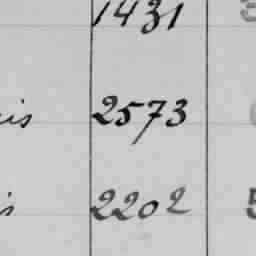 1431
is 2573
is 2202 5